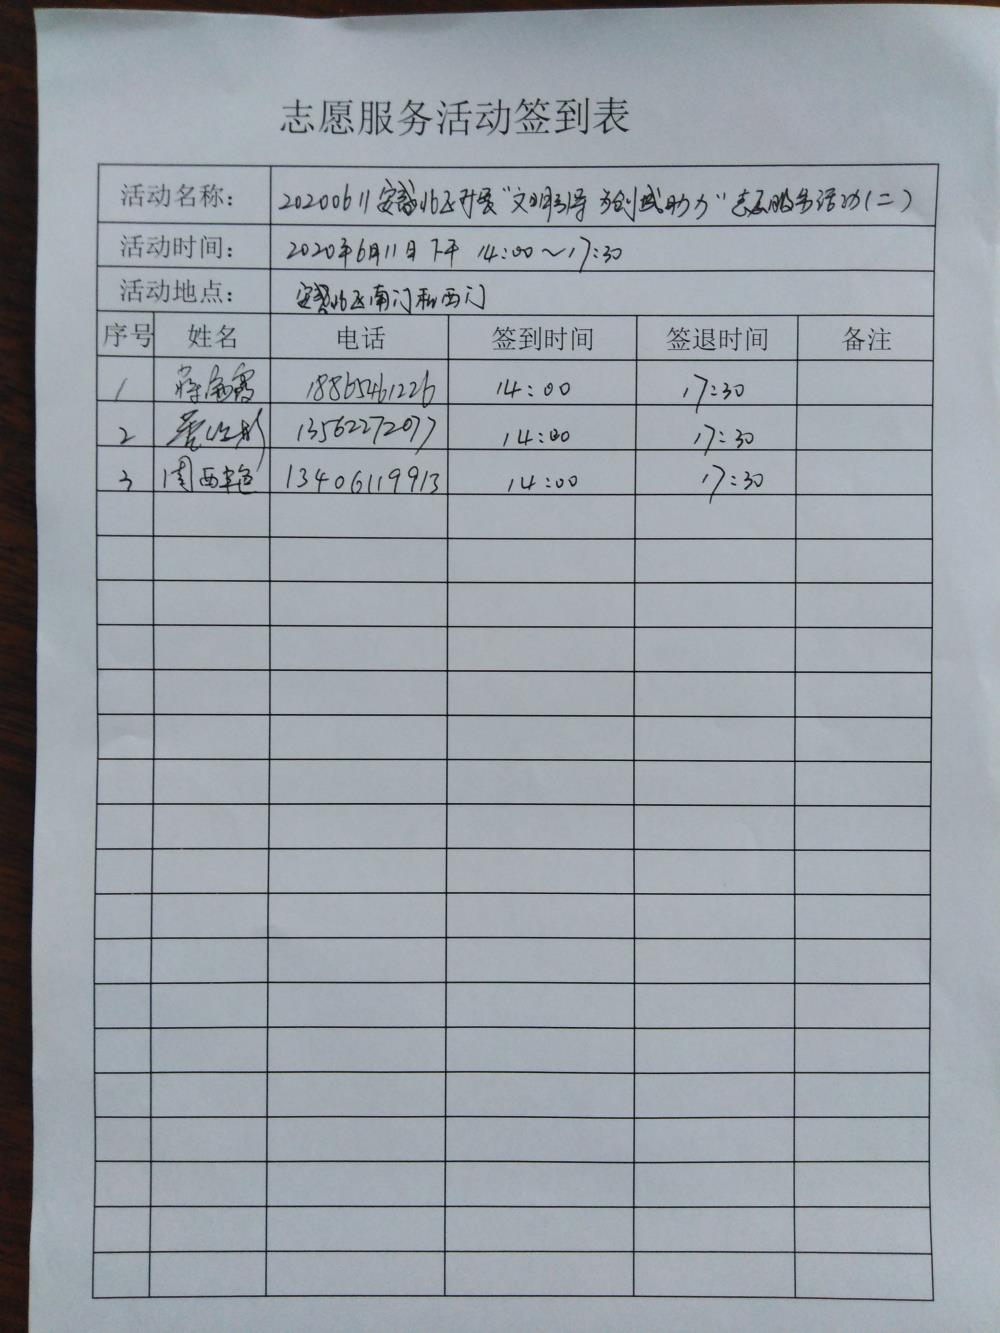 志愿服务活动签到表
活动名称： 20200611安馨北区开展“文明引导 为创城助力”志愿服务活动(二)
活动时间： 2020年6月11日下午 14:00～17:30
活动地点： 安馨北区南门和西门
序号 姓名 电话 签到时间 签退时间 备注
1 18865461226 14:00 17:30
2 13562272077 14:00 17:30
3 周西艳 13406119913 14:00 17:30